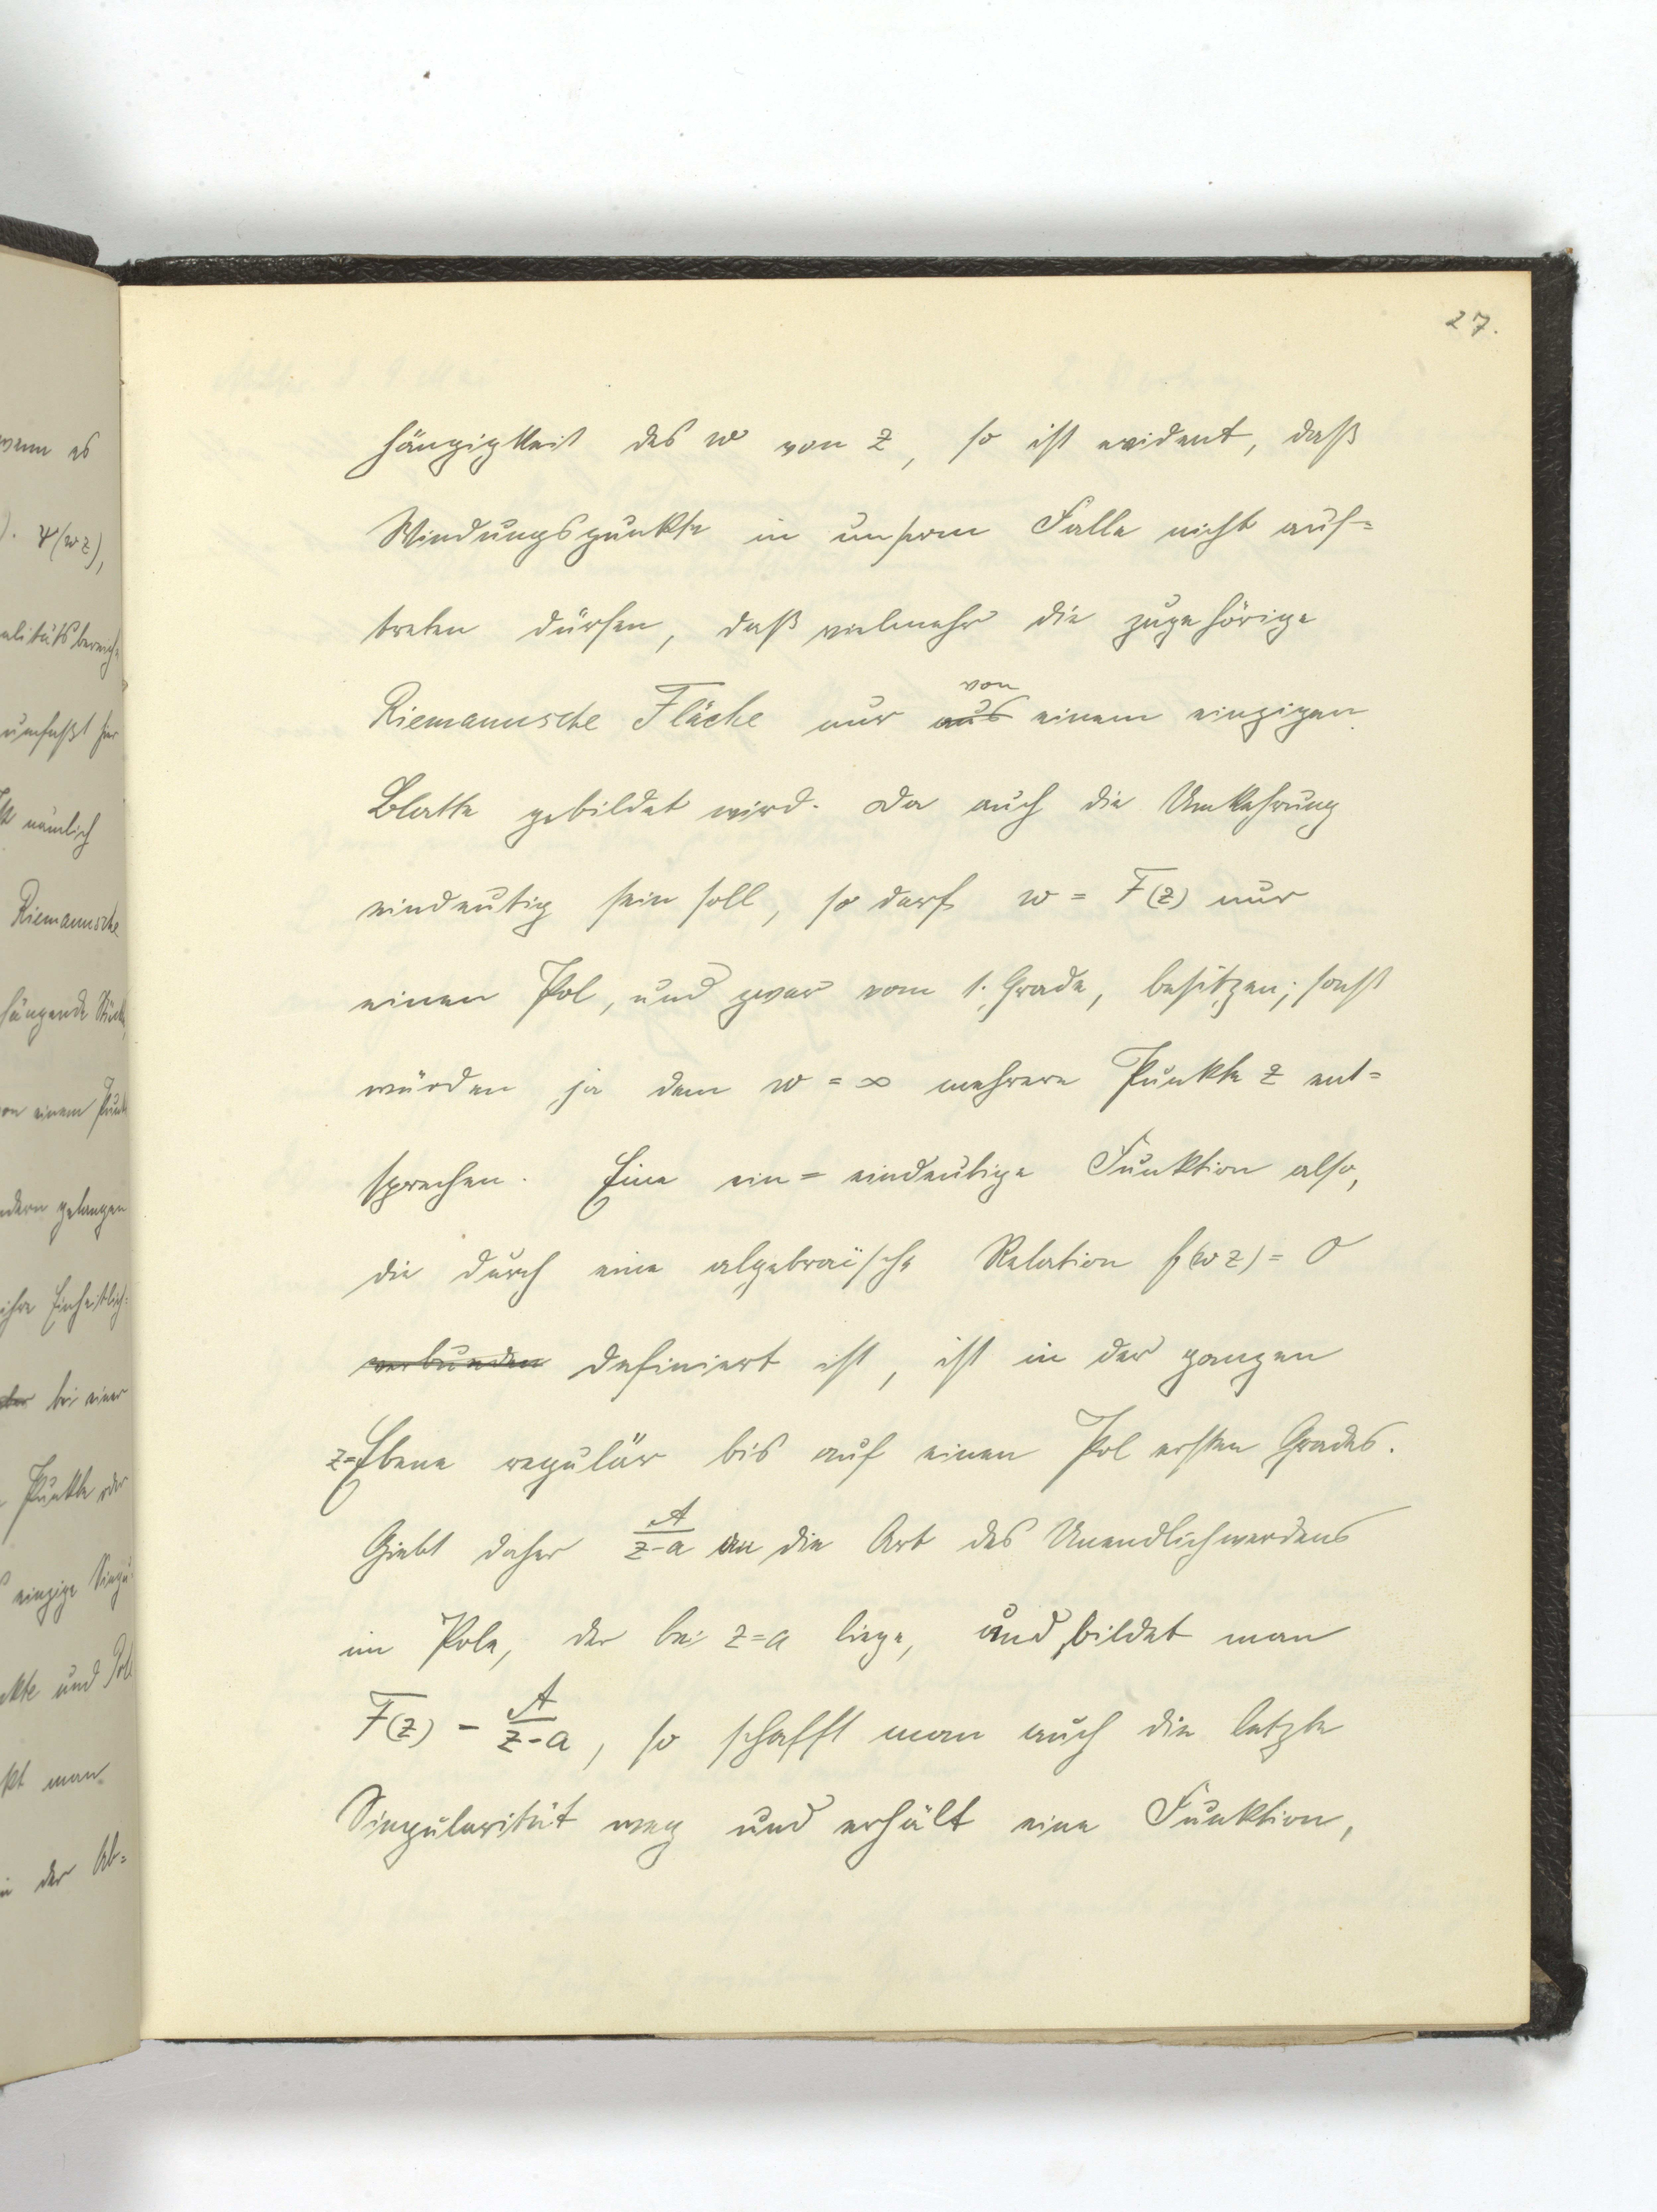 27.
hängigkeit des w von z, so ist evident, daß
Windungspunkte in unserm Falle nicht auf=
treten dürfen, daß vielmehr die zugehörige
Riemannsche Fläche nur aus von einem einzigen
Blatte gebildet wird. Da auch die Umkehrung
eindeutig sein soll, so darf w = F(z) nur
einen Pol, und zwar vom 1. Grade, besitzen; sonst
würden ja dem w = ∞ mehrere Punkte z ent=
sprechen. Eine ein=eindeutige Funktion also,
die durch eine algebraïsche Relation f(wz) = 0
verbunden definiert ist, ist in der ganzen
z=Ebene regulär bis auf einen Pol ersten Grades.
Giebt daher A/(z-a) an die Art des Unendlichwerdens
im Pole, der bei z=a liege, und bildet man
F(z) - A/(z-a), so schafft man auch die letzte
Singularität weg und erhält eine Funktion,
wenn es
). ψ(wz),
alitätsbereich=
umfaßt hier
nämlich
Riemannsche
hängende Stücke,
on einem Punkte
ndern gelangen
ihre Einheitlich=
bei einer
Punkte oder
einzige Singu=
nkte und Pole
kt man
in der Ab=